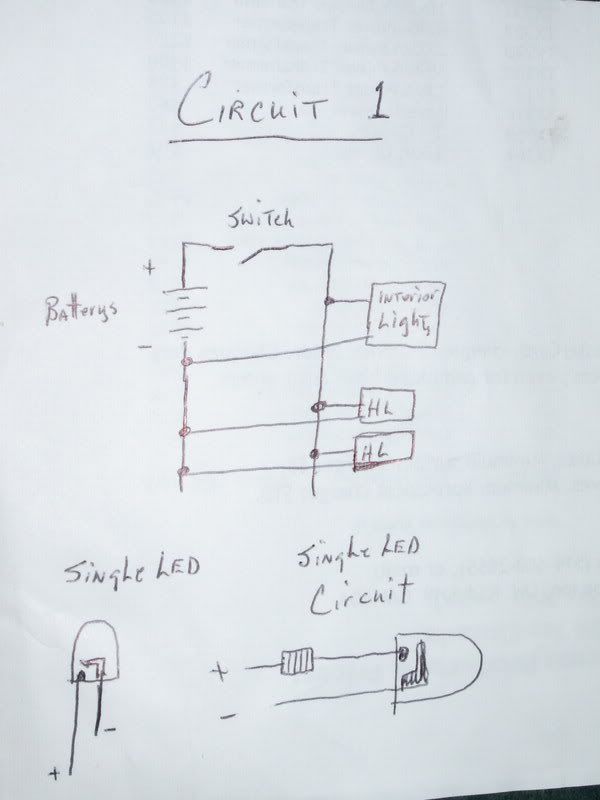 Circuit 1
Switch
+
Batterys
-
Interior
Lights
HL
HL
Single LED
Single LED
Circuit
+
-
-
+